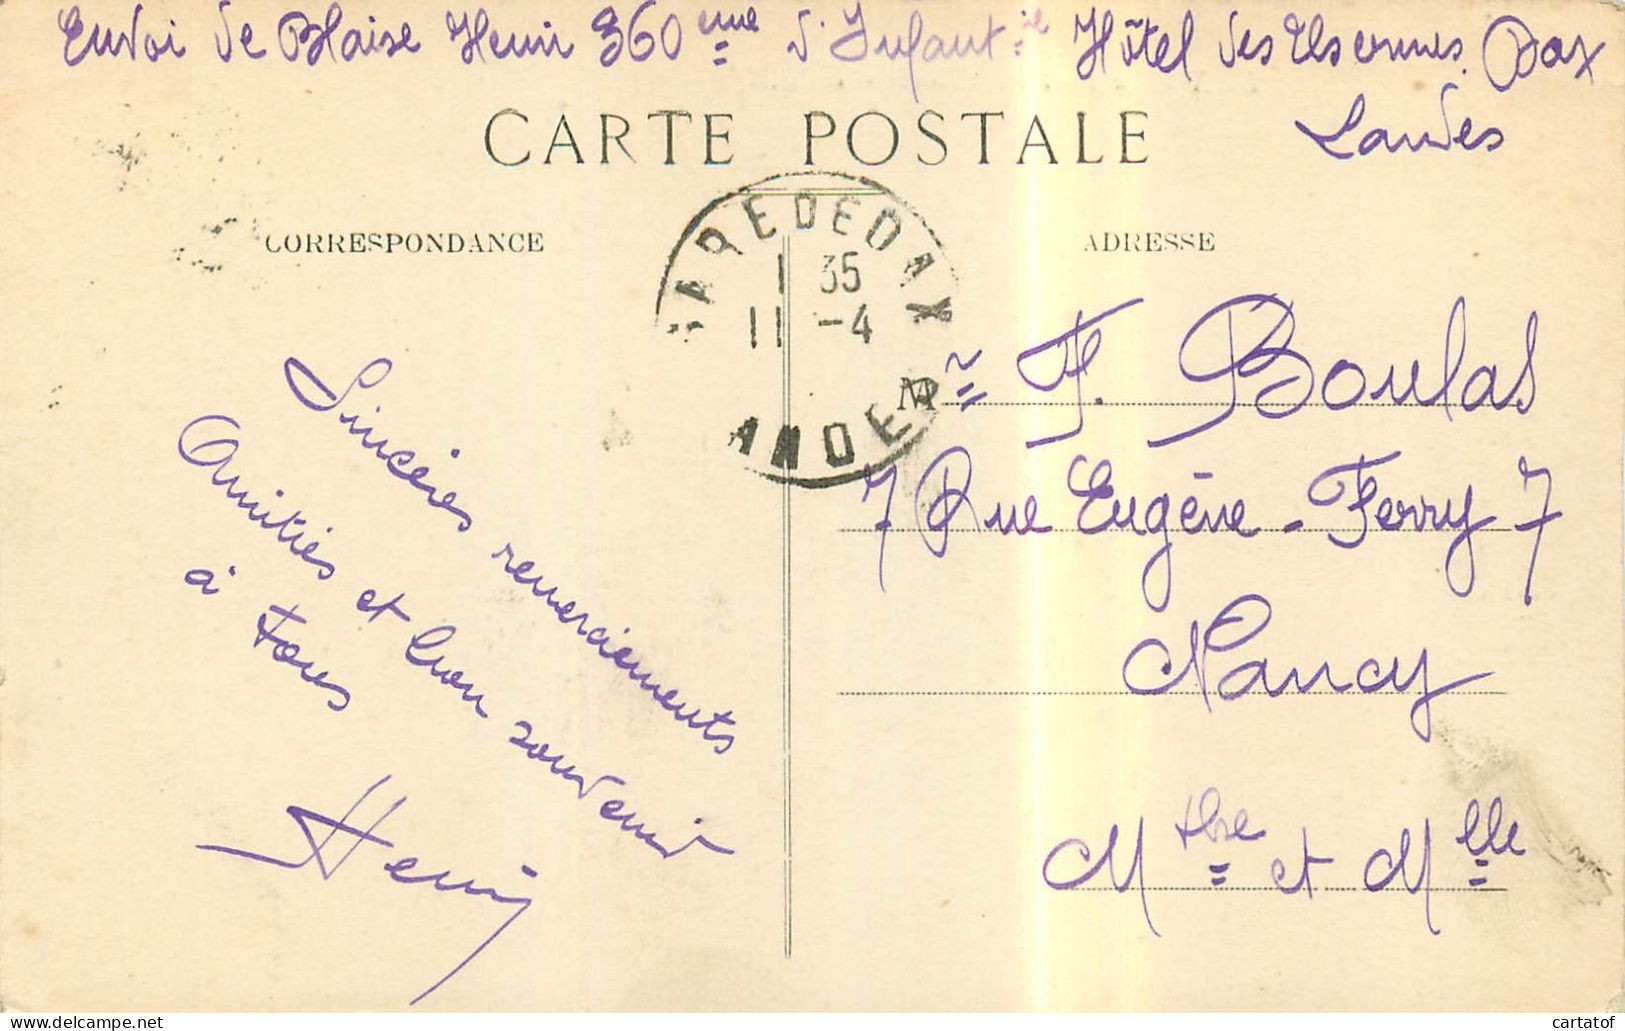 Envoi de Blaise Henri 360 eme d'Infant ie Hôtel des Thermes. Dax
Landes
CARTE POSTALE
CORRESPONDANCE
ADRESSE
GARE DE DAX
1 35
11 -4
LANDES
Sincères remerciements
Amitiés et bon souvenir
à tous
Henri
Mr F. Boulas
7 Rue Eugène-Ferry 7
Nancy
et Mlle
cartatof